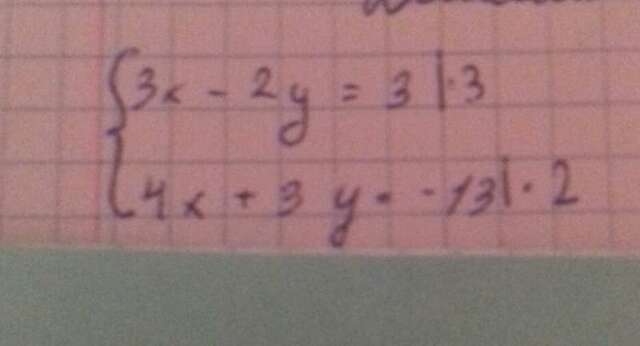 {3x - 2y = 3 |·3
4x + 3y = -13 |·2